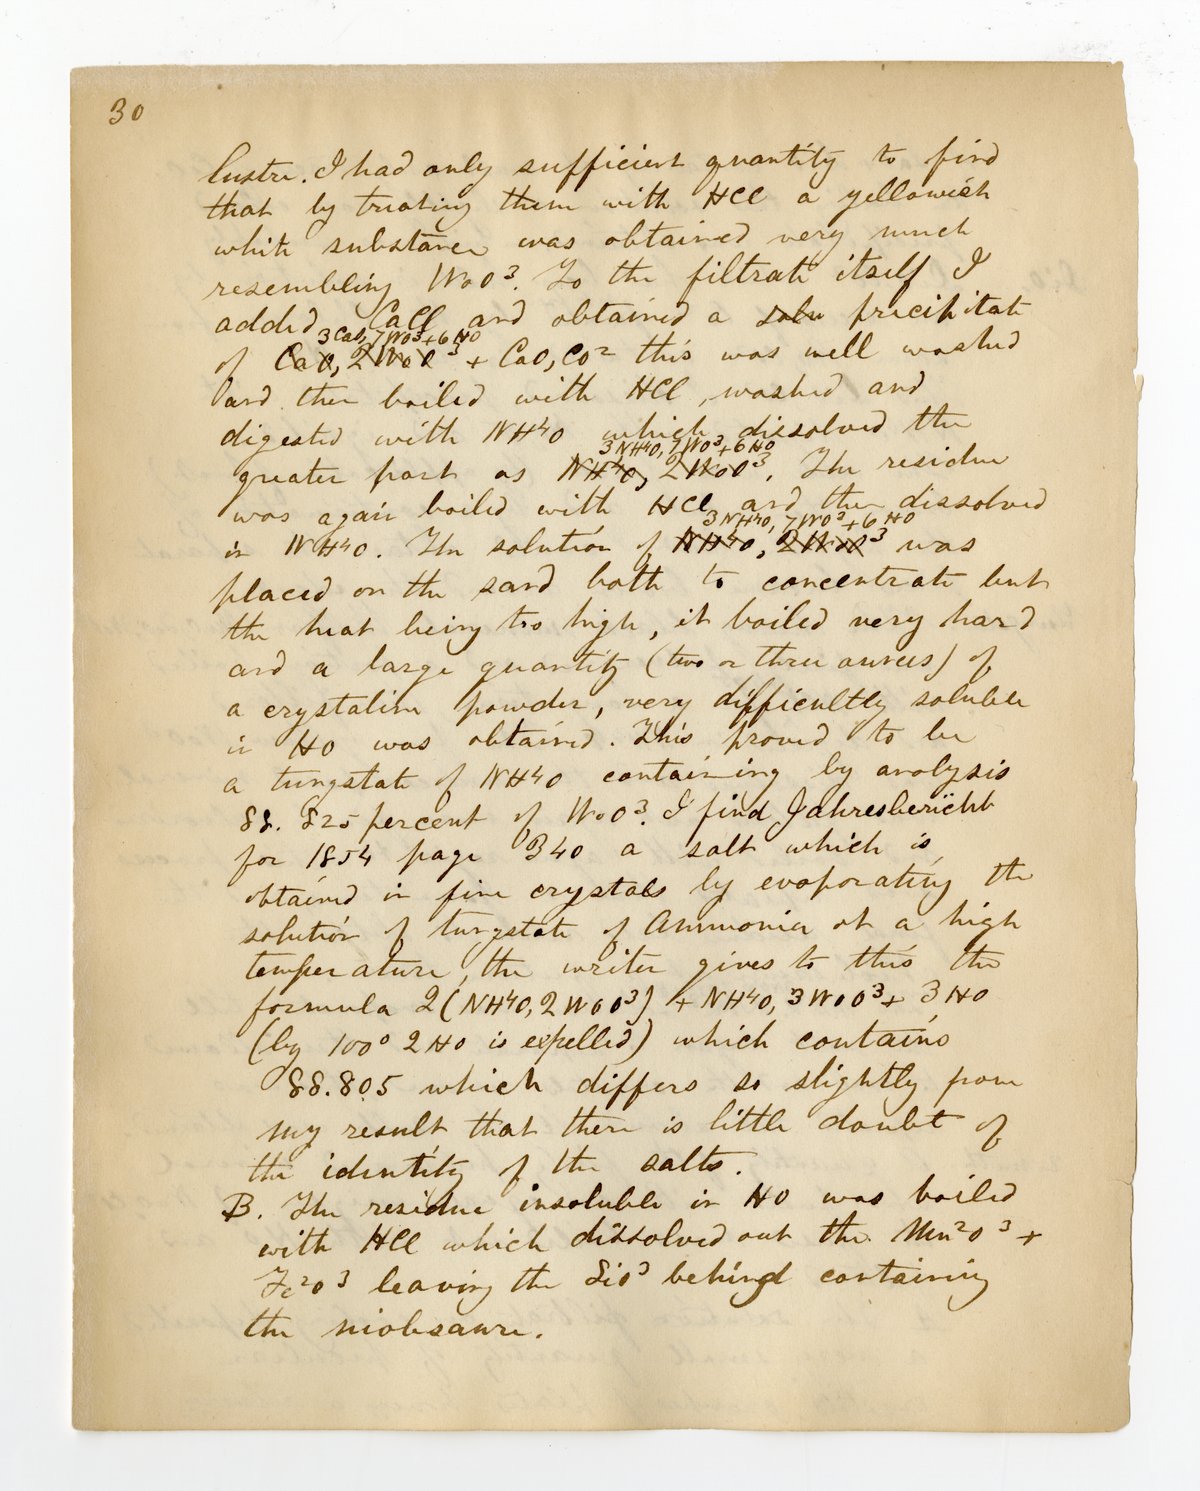 30
lustre. I had only sufficient quantity to find
that by treating them with HCl a yellowish
white substance was obtained very much
resembling WoO³. To the filtrate itself I
added CaCl and obtained a solu precipitate
3CaO,7WoO³+6HO
of CaO, 2WoO³ + CaO,CO² this was well washed
and then boiled with HCl, washed and
digested with NH⁴O which dissolved the
3NH⁴O,7WO³+6HO
greater part as NH⁴O, 2WoO³. The residue
was again boiled with HCl and then dissolved
3NH⁴O,7WO³+6HO
in NH⁴O. The solution of NH⁴O, 2WoO³ was
placed on the sand bath to concentrate but
the heat being too high, it boiled very hard
and a large quantity (two or three ounces) of
a crystaline powder, very difficultly soluble
in HO was obtained. This proved to be
a tungstate of NH⁴O containing by analysis
88.825 percent of WoO³. I find Jahresbericht
for 1854 page 340 a salt which is
obtained in fine crystals by evaporating the
solution of tungstate of Ammonia at a high
temperature, the writer gives to this the
formula 2(NH⁴O,2WoO³) + NH⁴O,3WoO³ + 3HO
(by 100° 2HO is expelled) which contains
88.805 which differs so slightly from
my result that there is little doubt of
the identity of the salts.
B. The residue insoluble in HO was boiled
with HCl which dissolved out the Mn²O³ +
Fe²O³ leaving the SiO³ behind containing
the niobsaure.